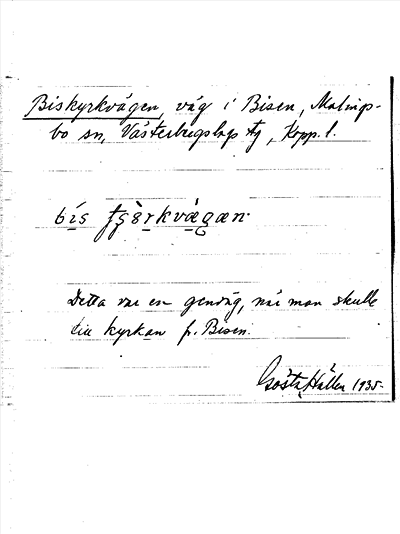 Biskyrkvägen, väg i Bisen, Malings-
bo sn, Västerbergslags tg, Kopp. l.
Detta var en genväg, när man skulle
till kyrkan fr. Bisen.
Gösta Hallen 1935